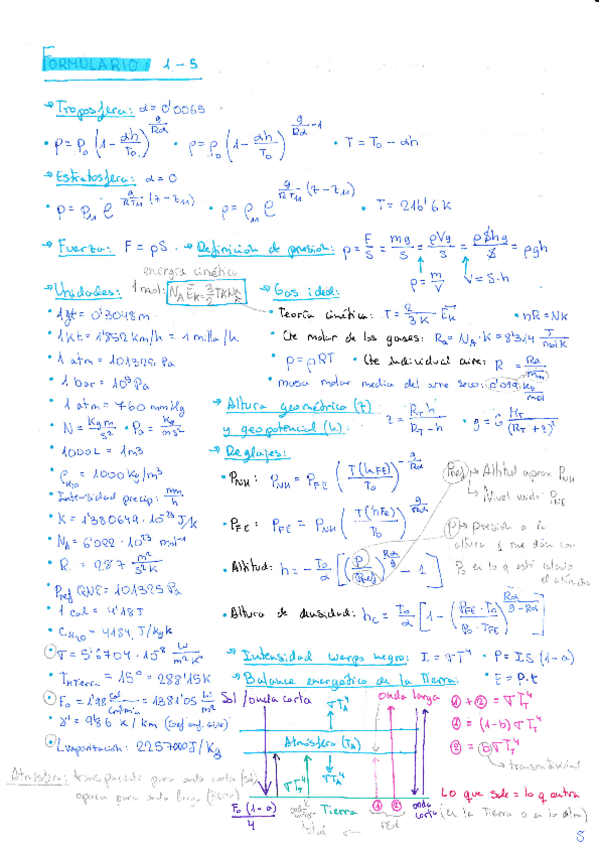 FORMULARIO: 1-5
→ Troposfera: α = 0'0065
• p = p₀ (1 - αh/T₀)^(g/Rα) • ρ = ρ₀ (1 - αh/T₀)^(g/Rα - 1) • T = T₀ - αh
→ Estratosfera: α = 0
• p = p₁₁ e^(g/RT₁₁ (z - z₁₁)) • ρ = ρ₁₁ e^(g/RT₁₁ (z - z₁₁)) • T = 216'6 K
→ Fuerza: F = pS → Definición de presión: p = F/S = mg/S = ρVg/S = ρShg/S = ρgh
ρ = m/V V = S·h
energía cinética
→ Unidades: 1 mol:
→ Gas ideal:
• 1 ft = 0'3048 m
• Teoría cinética: T = 2/3K Ek • nR = NK
• 1 kt = 1'852 km/h = 1 milla/h
• Cte molar de los gases: Ra = NA·K = 8'314 J/mol K
• 1 atm = 101325 Pa
• p = ρRT • Cte individual aire: R = Ra/mm
• 1 bar = 10⁵ Pa
• masa molar media del aire seco:
• 1 atm = 760 mmHg
→ Altura geométrica (z) y geopotencial (h): • z = RT h/(RT - h)
• N = Kg m/s² • Pa = Kg/m s²
• 1000 L = 1 m³
→ Reglajes:
• ρH₂O = 1000 kg/m³
• PNH: PNH = PFE (T(hFE)/T₀)^(-g/Rα)
Pref → Altitud aprox PNH
↳ Nivel vuelo PNE
• Intensidad precip: mm/h
• K = 1'380649·10⁻²³ J/K
• PFE: PFE = PNH (T(hFE)/T₀)
p → presión a la
altura q me dan con
• NA = 6'022·10²³ mol⁻¹
• R = 287 m²/s²K
• Altitud: h = -T₀/α [(P/Pref)^(Rα/g) - 1]
• Pref QNE = 101325 Pa
• 1 cal = 4'18 J
• Altura de densidad: hc = T₀/α [1 - (PFE·T₀/P₀·TFE)^(Rα/g-Rα)]
• CH₂O = 4184 J/kgK
• σ = 5'5704·10⁻⁸ W/m²K⁴
→ Intensidad cuerpo negro: I = σT⁴ • P = IS(1-a)
• TmTierra = 15° = 288'15 K
→ Balance energético de la Tierra: • E = P·t
• F₀ = 1'98 cal/cm²min = 1381'05 W/m²
Sol/onda corta
onda larga
① + ② = σTT⁴
① = (1-b)σTT⁴
② = bσTT⁴
↳ transmisividad
• γ = 9'86 K/km
Atmósfera (TA)
σTA⁴
σTA⁴
σTT⁴
• Lvaporitación: 2257000 J/Kg
Atmósfera: transparente para onda corta (sol)
opaca para onda larga (tierra)
F₀(1-a)/4
Tierra
① ②
onda corta
Lo que sale = lo q entra
(en la Tierra o en la atm)
5